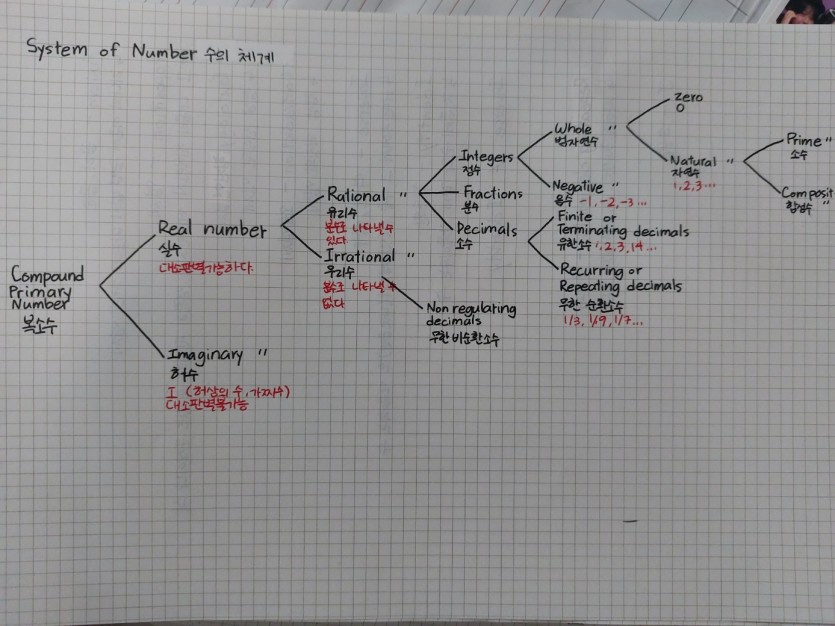 System of Number 수의 체계
Compound
Primary
Number
복소수
Real number
실수
대소판별가능하다
Imaginary "
허수
I (허상의 수, 가짜수)
대소판별불가능
Rational "
유리수
분수로 나타낼 수
있다
Irrational "
우리수
분수로 나타낼 수
없다
Non regulating
decimals
무한 비순환소수
Integers
정수
Fractions
분수
Decimals
소수
Whole "
범자연수
Negative "
음수 -1, -2, -3 ...
Finite or
Terminating decimals
유한소수 1, 2, 3, 14 ...
Recurring or
Repeating decimals
무한 순환소수
1/3, 1/9, 1/7 ...
Zero
0
Natural "
자연수
1, 2, 3 ...
Prime "
소수
Composit
합성수 "